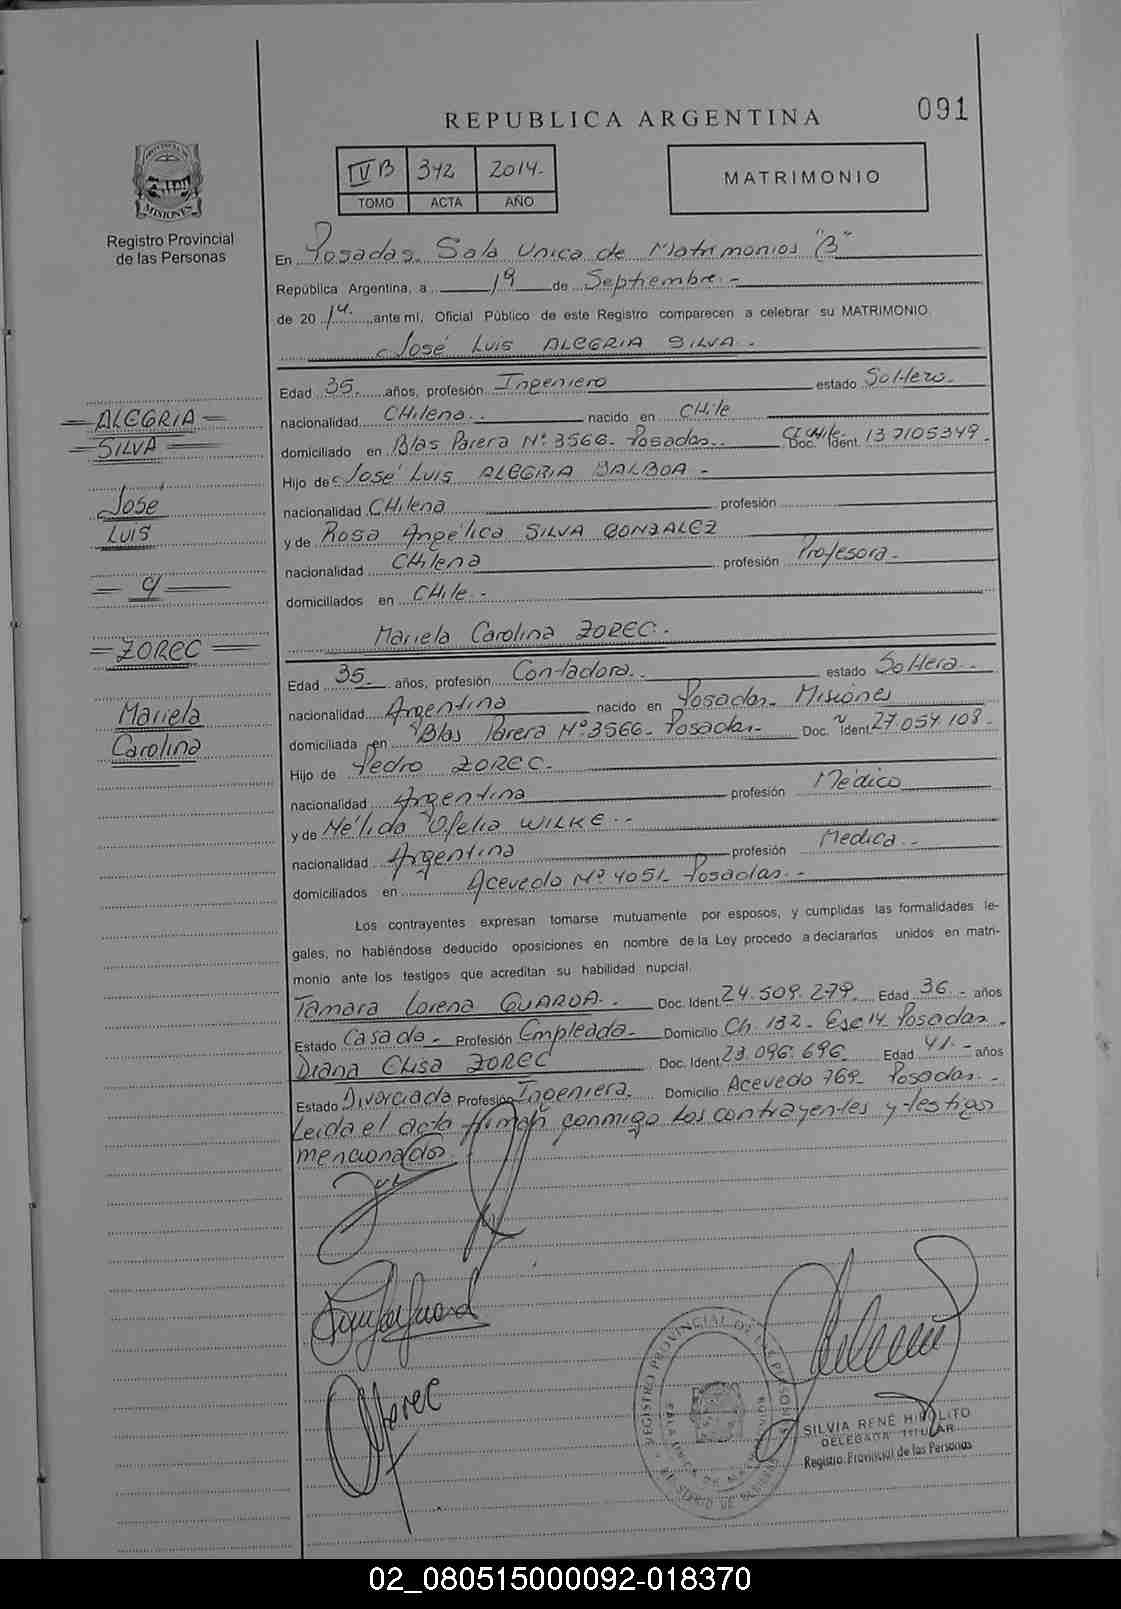 REPUBLICA ARGENTINA
091
PROVINCIA DE
MISIONES
Registro Provincial
de las Personas
IVB 342 2014.
TOMO ACTA AÑO
MATRIMONIO
En Posadas. Sala Unica de Matrimonios "B"
República Argentina, a 19 de Septiembre.-
de 2014. ante mí, Oficial Público de este Registro comparecen a celebrar su MATRIMONIO.
José Luis ALEGRIA SILVA.
Edad 35. años, profesión Ingeniero estado Soltero.
= ALEGRIA = nacionalidad CHilena.. nacido en CHile
= SILVA = domiciliado en Blas Parera Nº 3566. Posadas.. CI CHile Doc. Ident. 137105349.
Hijo de José Luis ALEGRIA BALBOA -
José nacionalidad CHilena profesión
Luis y de Rosa Angélica SILVA GONZALEZ
nacionalidad CHilena profesión Profesora.
= c/ = domiciliados en CHile.-
Mariela Carolina ZOREC.
= ZOREC =
Edad 35. años, profesión Contadora.. estado Soltera..
Mariela nacionalidad Argentina nacido en Posadas. Misiones
Carolina domiciliada en Blas Parera Nº 3566. Posadas.- Doc. Ident. 27.057.108.
Hijo de Pedro ZOREC.
nacionalidad Argentina profesión Médico
y de Nélida Ofelia WILKE..
nacionalidad Argentina profesión Medica..
domiciliados en Acevedo Nº 4051. Posadas.-
Los contrayentes expresan tomarse mutuamente por esposos, y cumplidas las formalidades le-
gales, no habiéndose deducido oposiciones en nombre de la Ley procedo a declararlos unidos en matri-
monio ante los testigos que acreditan su habilidad nupcial.
Tamara Lorena GUARDA.. Doc. Ident. 24.509.279. Edad 36.- años
Estado Casada. Profesión Empleada. Domicilio Ch. 132. Esc 14. Posadas.
Diana Elisa ZOREC Doc. Ident. 23.096.696. Edad 41.- años
Estado Divorciada Profesión Ingeniera. Domicilio Acevedo 769. Posadas.-
Leida el acta firman conmigo los contrayentes y testigos
mencionados.
Zorec
REGISTRO PROVINCIAL DE LAS PERSONAS
SILVIA RENÉ HIPOLITO
DELEGADA TITULAR
Registro Provincial de las Personas
02_080515000092-018370